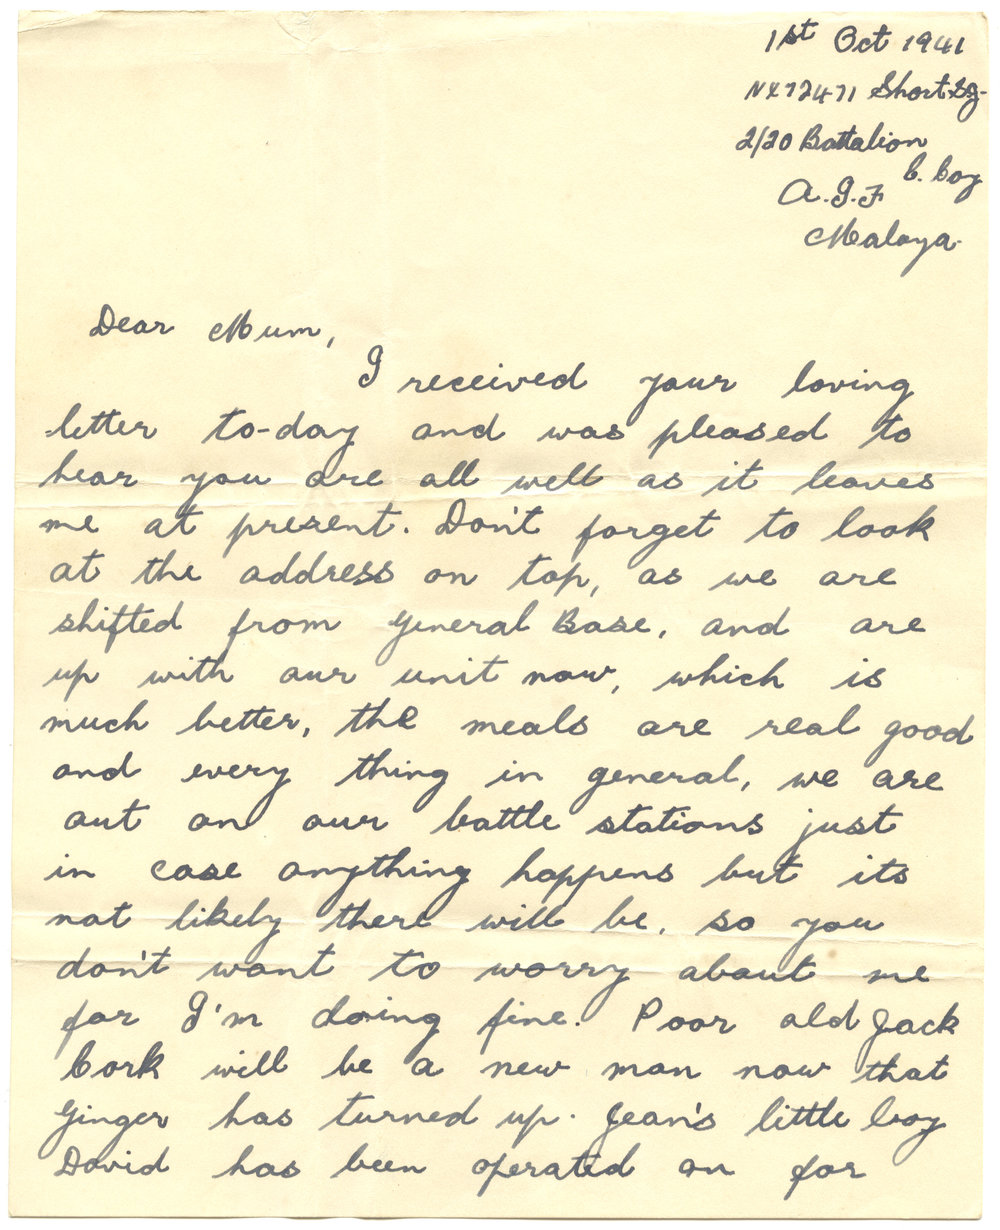 1st Oct 1941
NX72471 Short
2/20 Battalion
C. Coy
A.I.F
Malaya.
Dear Mum,
I received your loving
letter to-day and was pleased to
hear you are all well as it leaves
me at present. Don't forget to look
at the address on top, as we are
shifted from General Base, and are
up with our unit now, which is
much better, the meals are real good
and every thing in general, we are
out on our battle stations just
in case anything happens but its
not likely there will be, so you
don't want to worry about me
for I'm doing fine. Poor old Jack
Cork will be a new man now that
Ginger has turned up. Jean's little boy
David has been operated on for